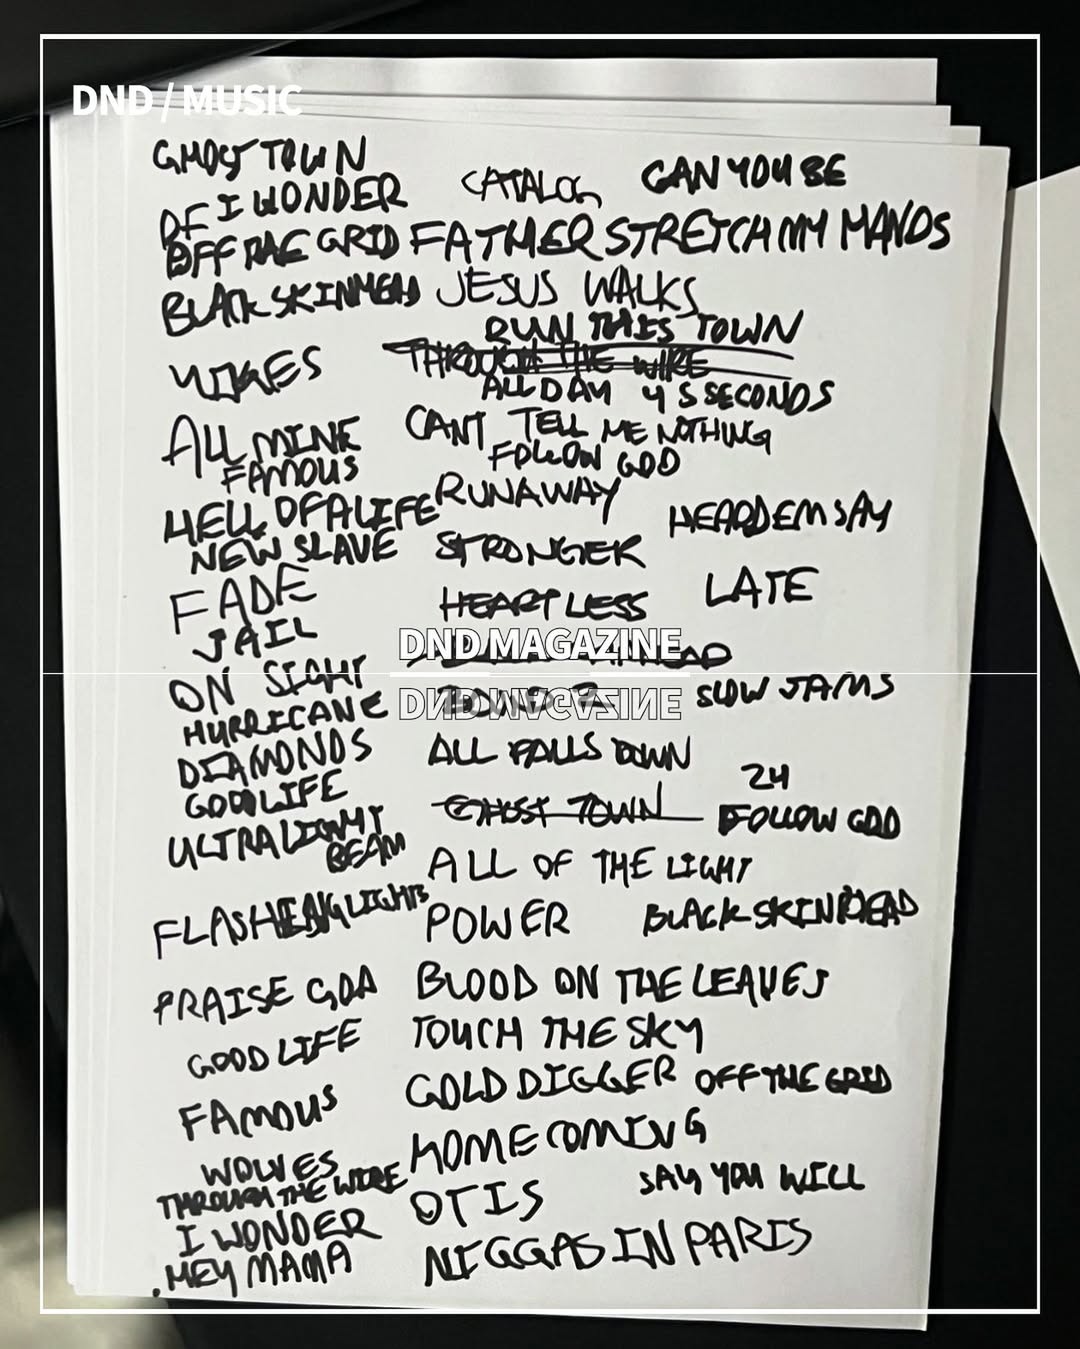 DND / MUSIC
GHOST TOWN
I WONDER CATALOG CAN YOU BE
OFF THE GRID FATHER STRETCH MY HANDS
BLACKSKINHEAD JESUS WALKS
RUN THIS TOWN
THROUGH THE WIRE
YIKES
ALL DAY 4 5 SECONDS
ALL MINE CANT TELL ME NOTHING
FAMOUS FOLLOW GOD
HELL OF A LIFE RUNAWAY HEARDEMSAY
NEW SLAVE STRONGER
FADE HEARTLESS LATE
JAIL
DND MAGAZINE
ON SIGHT SLOW JAMS
DND MAGAZINE
HURRICANE
DIAMONDS ALL FALLS DOWN
GOODLIFE 24
ULTRALIGHT GHOST TOWN FOLLOW GOD
BEAM ALL OF THE LIGHT
FLASHENGLIGHTS POWER BLACKSKINHEAD
PRAISE GOD BLOOD ON THE LEAVES
GOOD LIFE TOUCH THE SKY
FAMOUS GOLD DIGGER OFF THE GRID
WOLVES HOMECOMING
THROUGH THE WIRE OTIS SAY YOU WILL
I WONDER
HEY MAMA NIGGAS IN PARIS